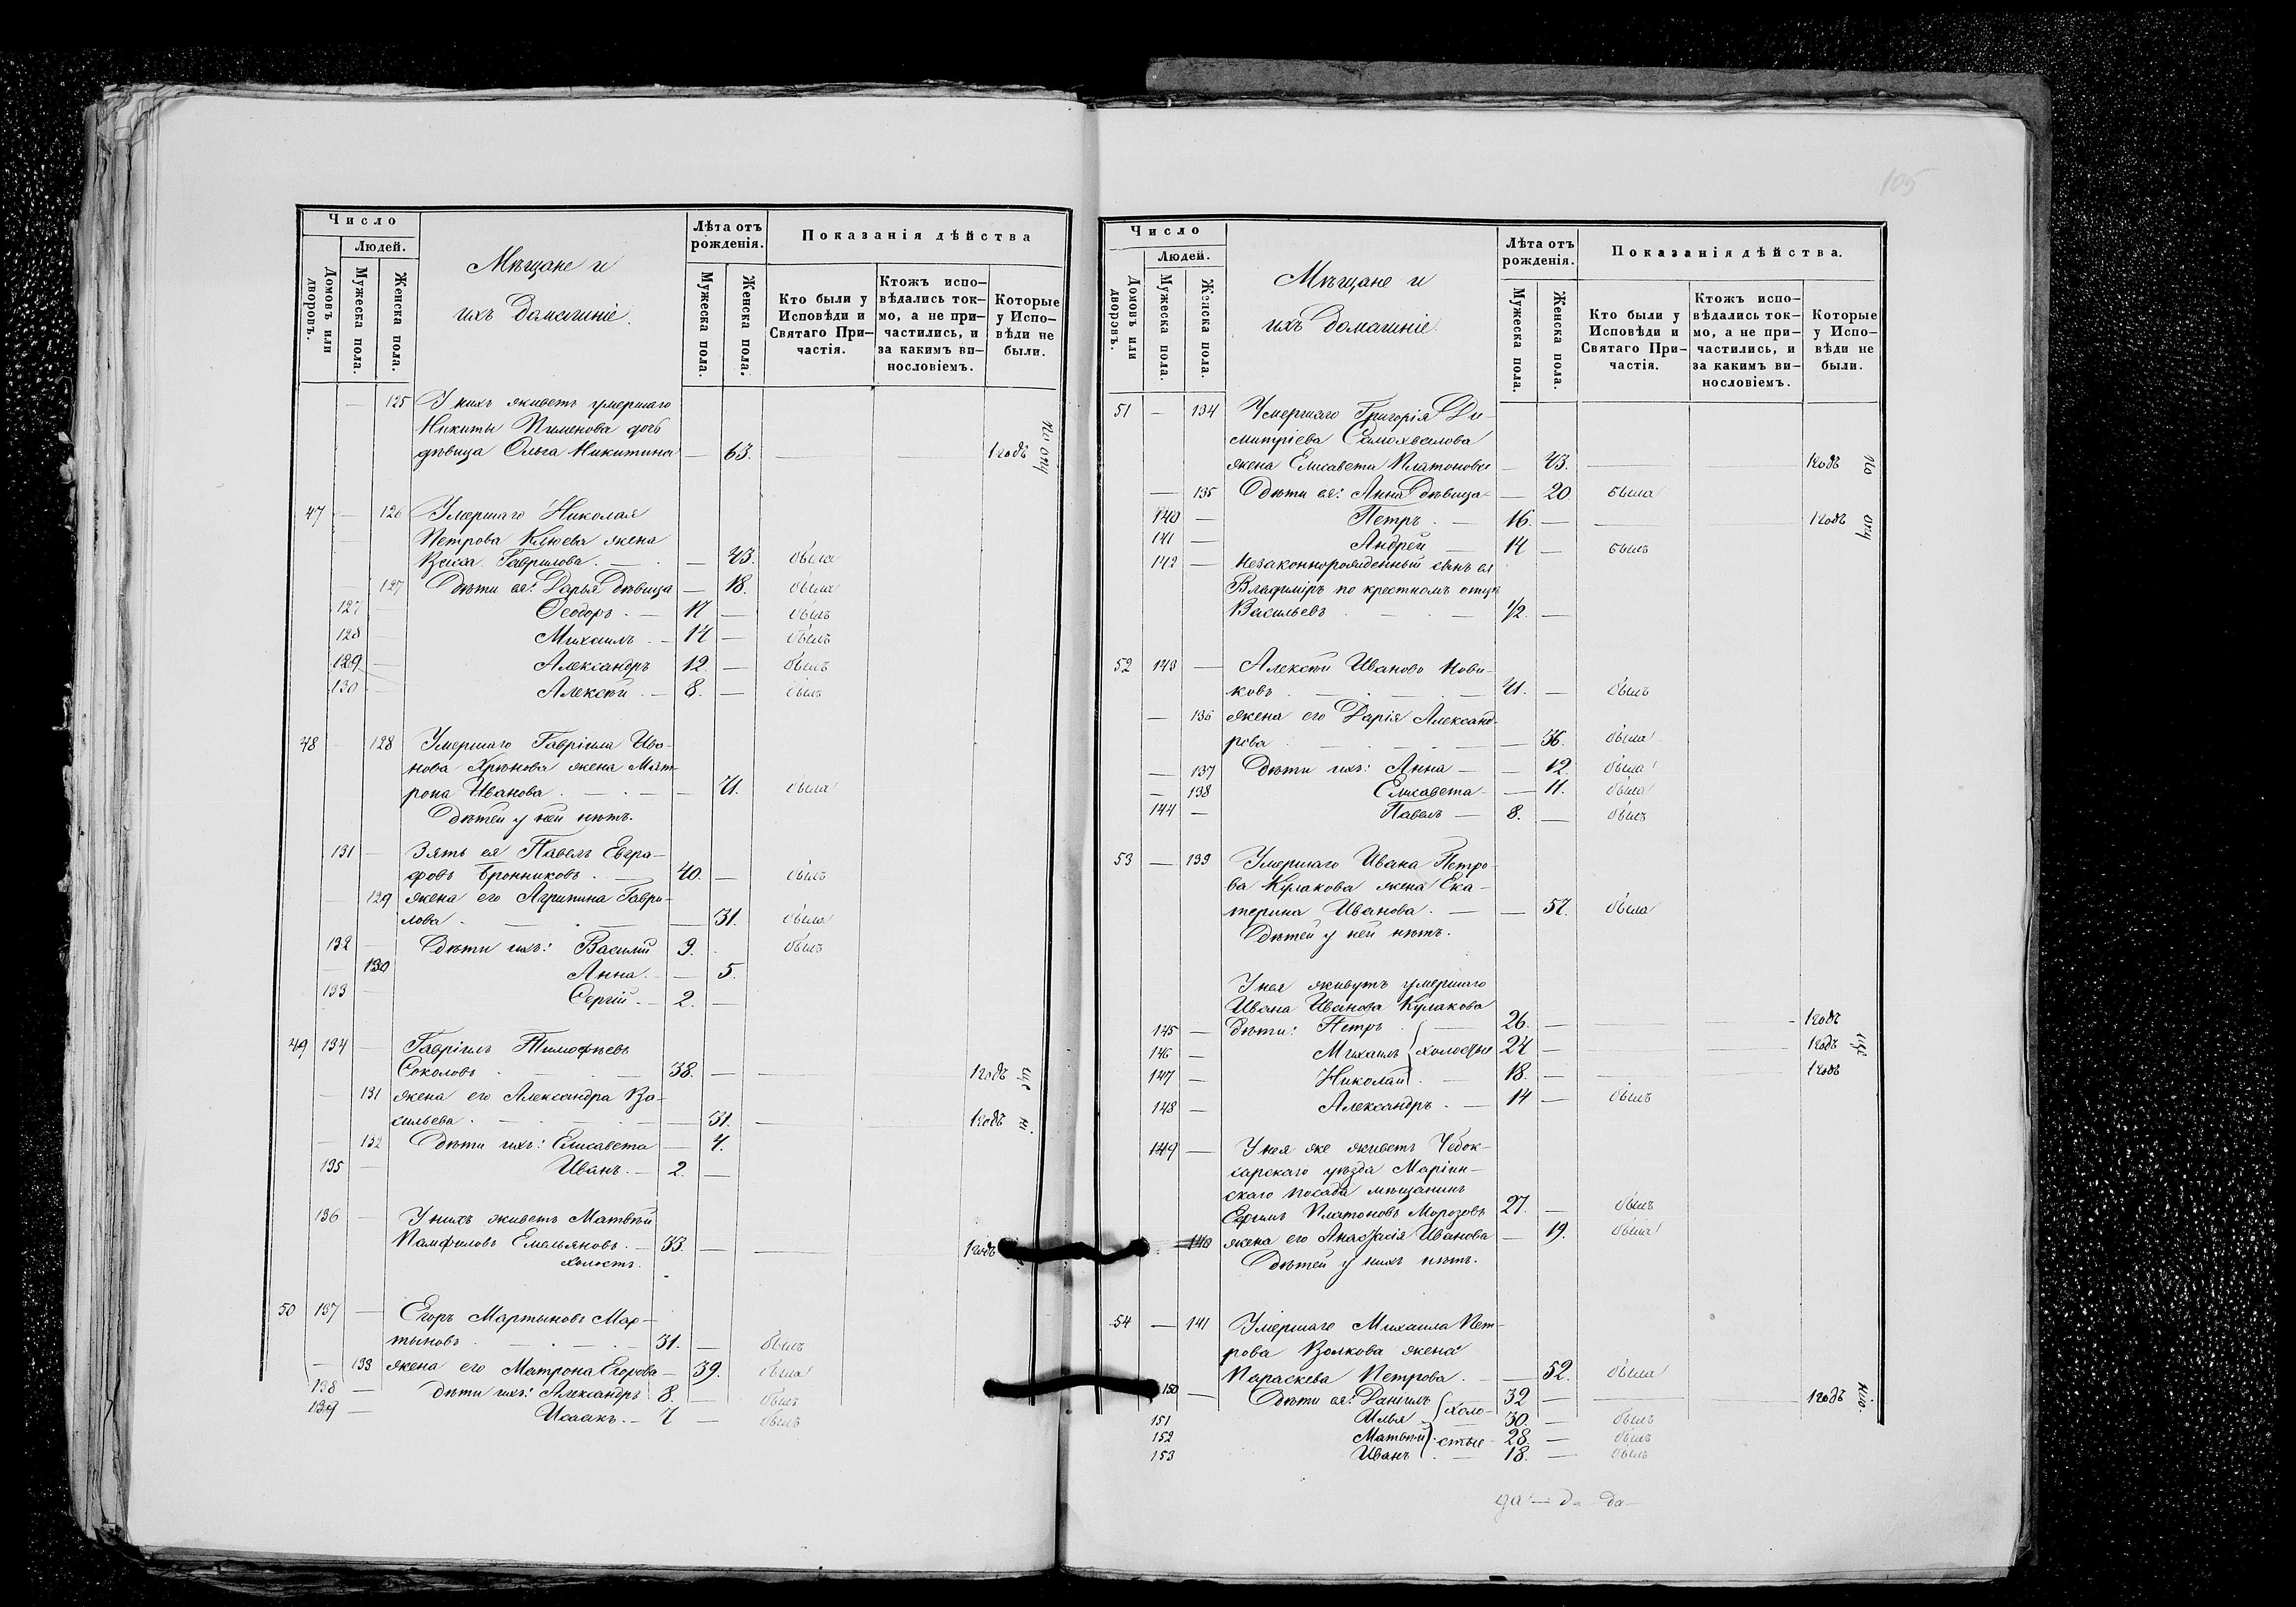 Число
Людей.
Домовъ или дворовъ.
Мужеска пола.
Женска пола.
Мѣщане и
ихъ домашніе.
Лѣта отъ рожденія.
Мужеска пола.
Женска пола.
Показанія дѣйства
Кто были у Исповѣди и Святаго При-частія.
Ктожъ испо-вѣдались ток-мо, а не при-частились, и за какимъ ви-нословіемъ.
Которые у Испо-вѣди не были.
— 125 У нихъ живетъ умершаго
Никиты Пименова дочь
дѣвица Ольга Никитина — 63. — — 1 годъ
по опу
47 — 126 Умершаго Николая
Петрова Клюева жена
Гаврилова. — 43. была
— 127 Дѣти ея: Дарья дѣвица — 18. была
127 — Ѳеодоръ. — 17 — былъ
128 — Михаилъ. — 14 — былъ
129 — Александръ 12 — былъ
130 — Алексѣй. — 8. — былъ
48 — 128 Умершаго Гавріила Ива-
нова Хрѣнова жена Мат-
рона Иванова. — 71. была
Дѣтей у ней нѣтъ.
131 — Зять ея Павелъ Евгра-
фовъ Бронниковъ. 40. — былъ
— 129 жена его Агрипина Гаври-
лова. — 31. была
132 — Дѣти ихъ: Василій 9. былъ
— 130 Анна. — 5.
133 — Сергій. — 2. —
49 134 — Гавріилъ Тимофѣевъ
Соколовъ 38. — 1 годъ
— 131 жена его Александра Ва-
сильева. — 31. 1 годъ
— 132 Дѣти ихъ: Елисавета — 4.
135 — Иванъ. — 2. —
136 — У нихъ живетъ Матвѣй
Памфиловъ Емельяновъ. — 33. — 1 годъ
холостъ.
50 137 — Егоръ Мартыновъ Мар-
тыновъ 31. — былъ
— 133 жена его Матрона Егорова — 39. была
138 — дѣти ихъ: Александръ 8. былъ
139 — Исаакъ. — 7 — былъ
105
Число
Людей.
Домовъ или дворовъ.
Мужеска пола.
Женска пола.
Мѣщане и
ихъ домашніе.
Лѣта отъ рожденія.
Мужеска пола.
Женска пола.
Показанія дѣйства.
Кто были у Исповѣди и Святаго При-частія.
Ктожъ испо-вѣдались ток-мо, а не при-частились, и за какимъ ви-нословіемъ.
Которые у Испо-вѣди не были.
51 — 134 Умершаго Григорія Ди-
митріева Самохвалова
жена Елисавета Платонова — 43. — 1 годъ
по опу
— 135 Дѣти ея: Анна дѣвица — 20 была
140 — Петръ. — 16. — 1 годъ
141 — Андрей — 14 — былъ
142 — Незаконнорожденный сынъ ея
Владиміръ по крестномъ отцѣ
Васильевъ 1/2. —
52 143 — Алексѣй Ивановъ Нови-
ковъ 41. — былъ
— 136 жена его Дарія Александ-
рова — 36. была
— 137 Дѣти ихъ: Анна — — 12. была
— 138 Елисавета — — 11. была
144 — Павелъ — 8. — былъ
53 — 139 Умершаго Ивана Петро-
ва Кулакова жена Ека-
терина Иванова. — — 57. была
Дѣтей у ней нѣтъ.
У нея живутъ умершаго
Ивана Иванова Кулакова
145 — дѣти: Петръ 26. — 1 годъ
146 — Михаилъ холостые 24 — 1 годъ
147 — Николай 18. — 1 годъ
148 — Александръ. — 14 — былъ
149 — У нея же живетъ Чебок-
сарскаго уѣзда Маріин-
скаго посада мѣщанинъ
Ефимъ Платоновъ Морозовъ 27. — былъ
140 жена его Анастасія Иванова — 19. была
Дѣтей у нихъ нѣтъ.
54 — 141 Умершаго Михаила Пет-
рова Волкова жена
Параскева Петрова. — 52. была
150 — Дѣти ея: Даніилъ холо- 32 — 1 годъ
151 Илья 30. — былъ
152 Матвѣй стые 28. — былъ
153 Иванъ 18. — былъ
да — да — да —